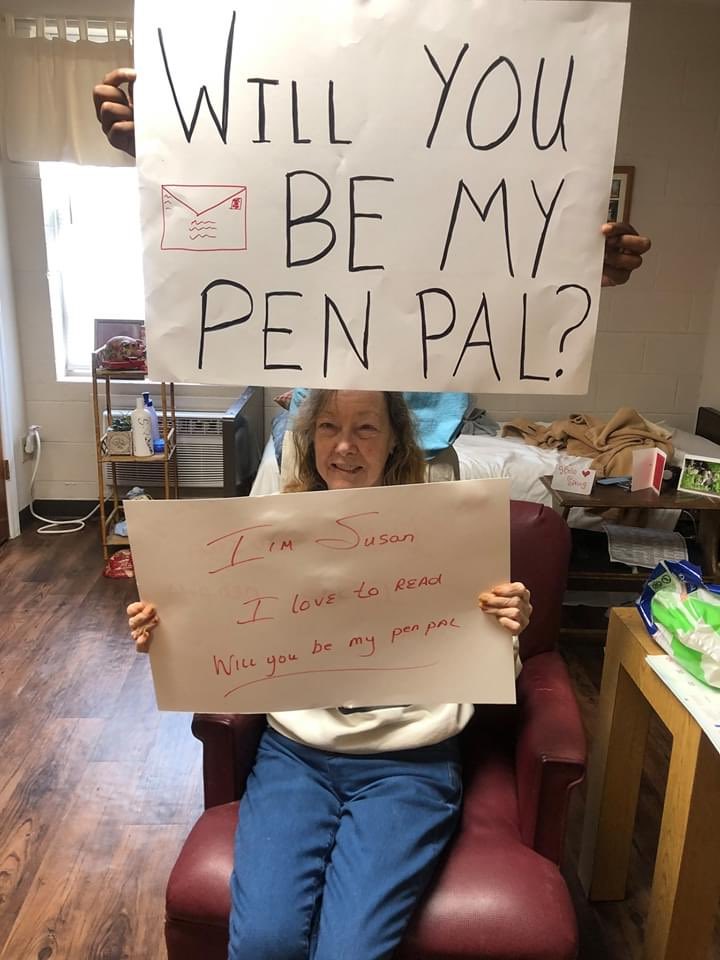 WILL YOU
BE MY
PEN PAL?
I'M SUSAN
I LOVE to READ
WILL you be my pen pAL